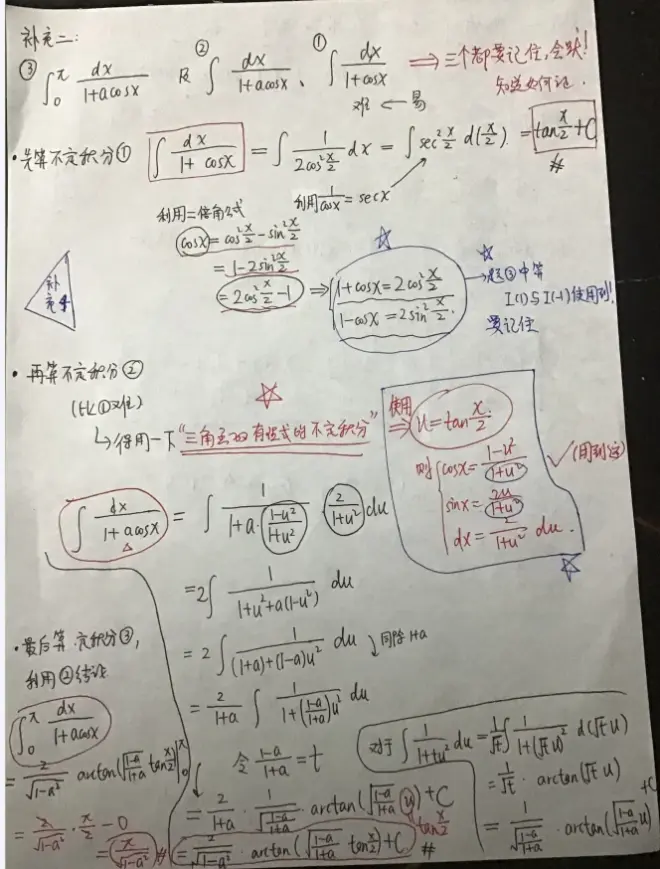 补充二:
③ ∫₀^π dx/(1+acosx) 及 ② ∫ dx/(1+acosx)、① ∫ dx/(1+cosx) ⇒ 三个都要记住,会默!
知道如何记.
难 ← 易
·先算不定积分① ∫ dx/(1+cosx) = ∫ 1/(2cos²(x/2)) dx = ∫ sec²(x/2) d(x/2). = tan(x/2)+C #
利用 1/cosx = secx
利用二倍角公式
cosx = cos²(x/2) - sin²(x/2)
= 1-2sin²(x/2)
= 2cos²(x/2) -1 ⇒ 1+cosx=2cos²(x/2)
1-cosx=2sin²(x/2).
→ 题③中算
I(1)与I(-1)使用到!
要记住
补充
·再算不定积分②
(比①难)
↳得用一下"三角函数有理式的不定积分"
使用 ⇒ u=tan(x/2)
则 cosx=(1-u²)/(1+u²)
sinx=2u/(1+u²)
dx=2/(1+u²) du.
✓(用到这)
∫ dx/(1+acosx) = ∫ 1/(1+a·(1-u²)/(1+u²)) · 2/(1+u²) du
=2∫ 1/(1+u²+a(1-u²)) du
= 2∫ 1/((1+a)+(1-a)u²) du ↓同除1+a
= 2/(1+a) ∫ 1/(1+((1-a)/(1+a))u²) du
令 (1-a)/(1+a)=t
= 2/(1+a) · 1/√((1-a)/(1+a)) · arctan(√((1-a)/(1+a)) u)+C
tan(x/2)
= 2/√(1-a²) · arctan(√((1-a)/(1+a)) tan(x/2))+C #
对于 ∫ 1/(1+tu²) du = 1/√t ∫ 1/(1+(√t u)²) d(√t u)
= 1/√t · arctan(√t u) +C
= 1/√((1-a)/(1+a)) · arctan(√((1-a)/(1+a)) u)+C
·最后算 定积分③,
利用②结论
∫₀^π dx/(1+acosx)
= 2/√(1-a²) arctan(√((1-a)/(1+a)) tan(x/2))|₀^π
= 2/√(1-a²) · π/2 - 0
= π/√(1-a²) #